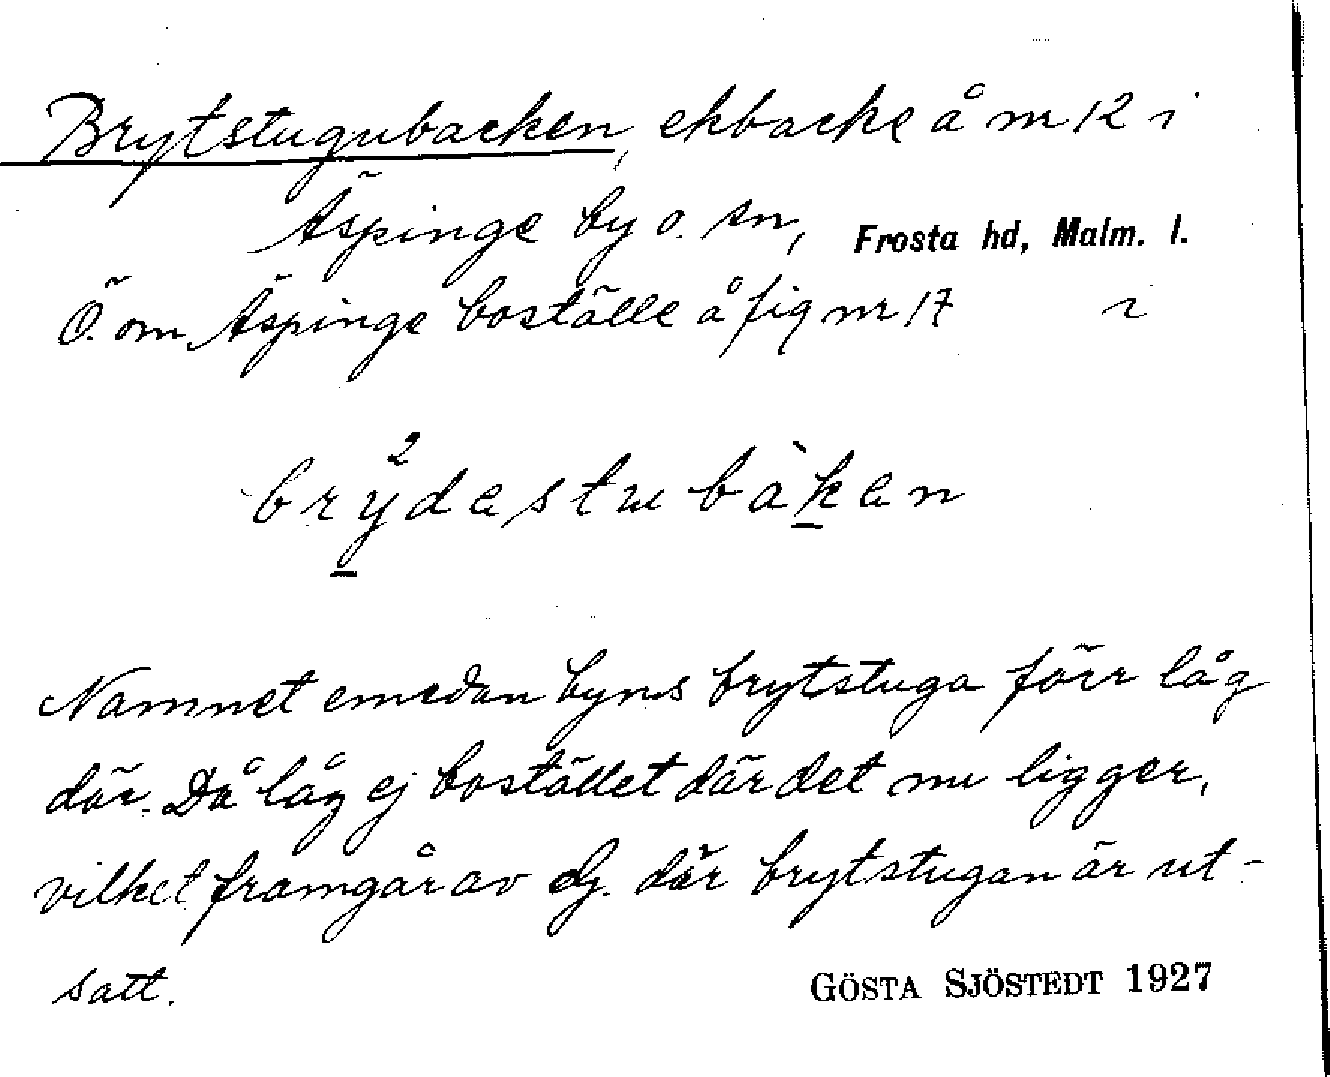 Brytstugubacken, ekbacke å nr 12 i
Äspinge by o. sn, Frosta hd, Malm. l.
Ö. om Äspinge boställe å fig nr 17 i
brydestubàken
Namnet emedan byns brytstuga förr låg
där. Då låg ej bostället där det nu ligger,
vilket framgår av dg. där brytstugan är ut-
satt.
GÖSTA SJÖSTEDT 1927